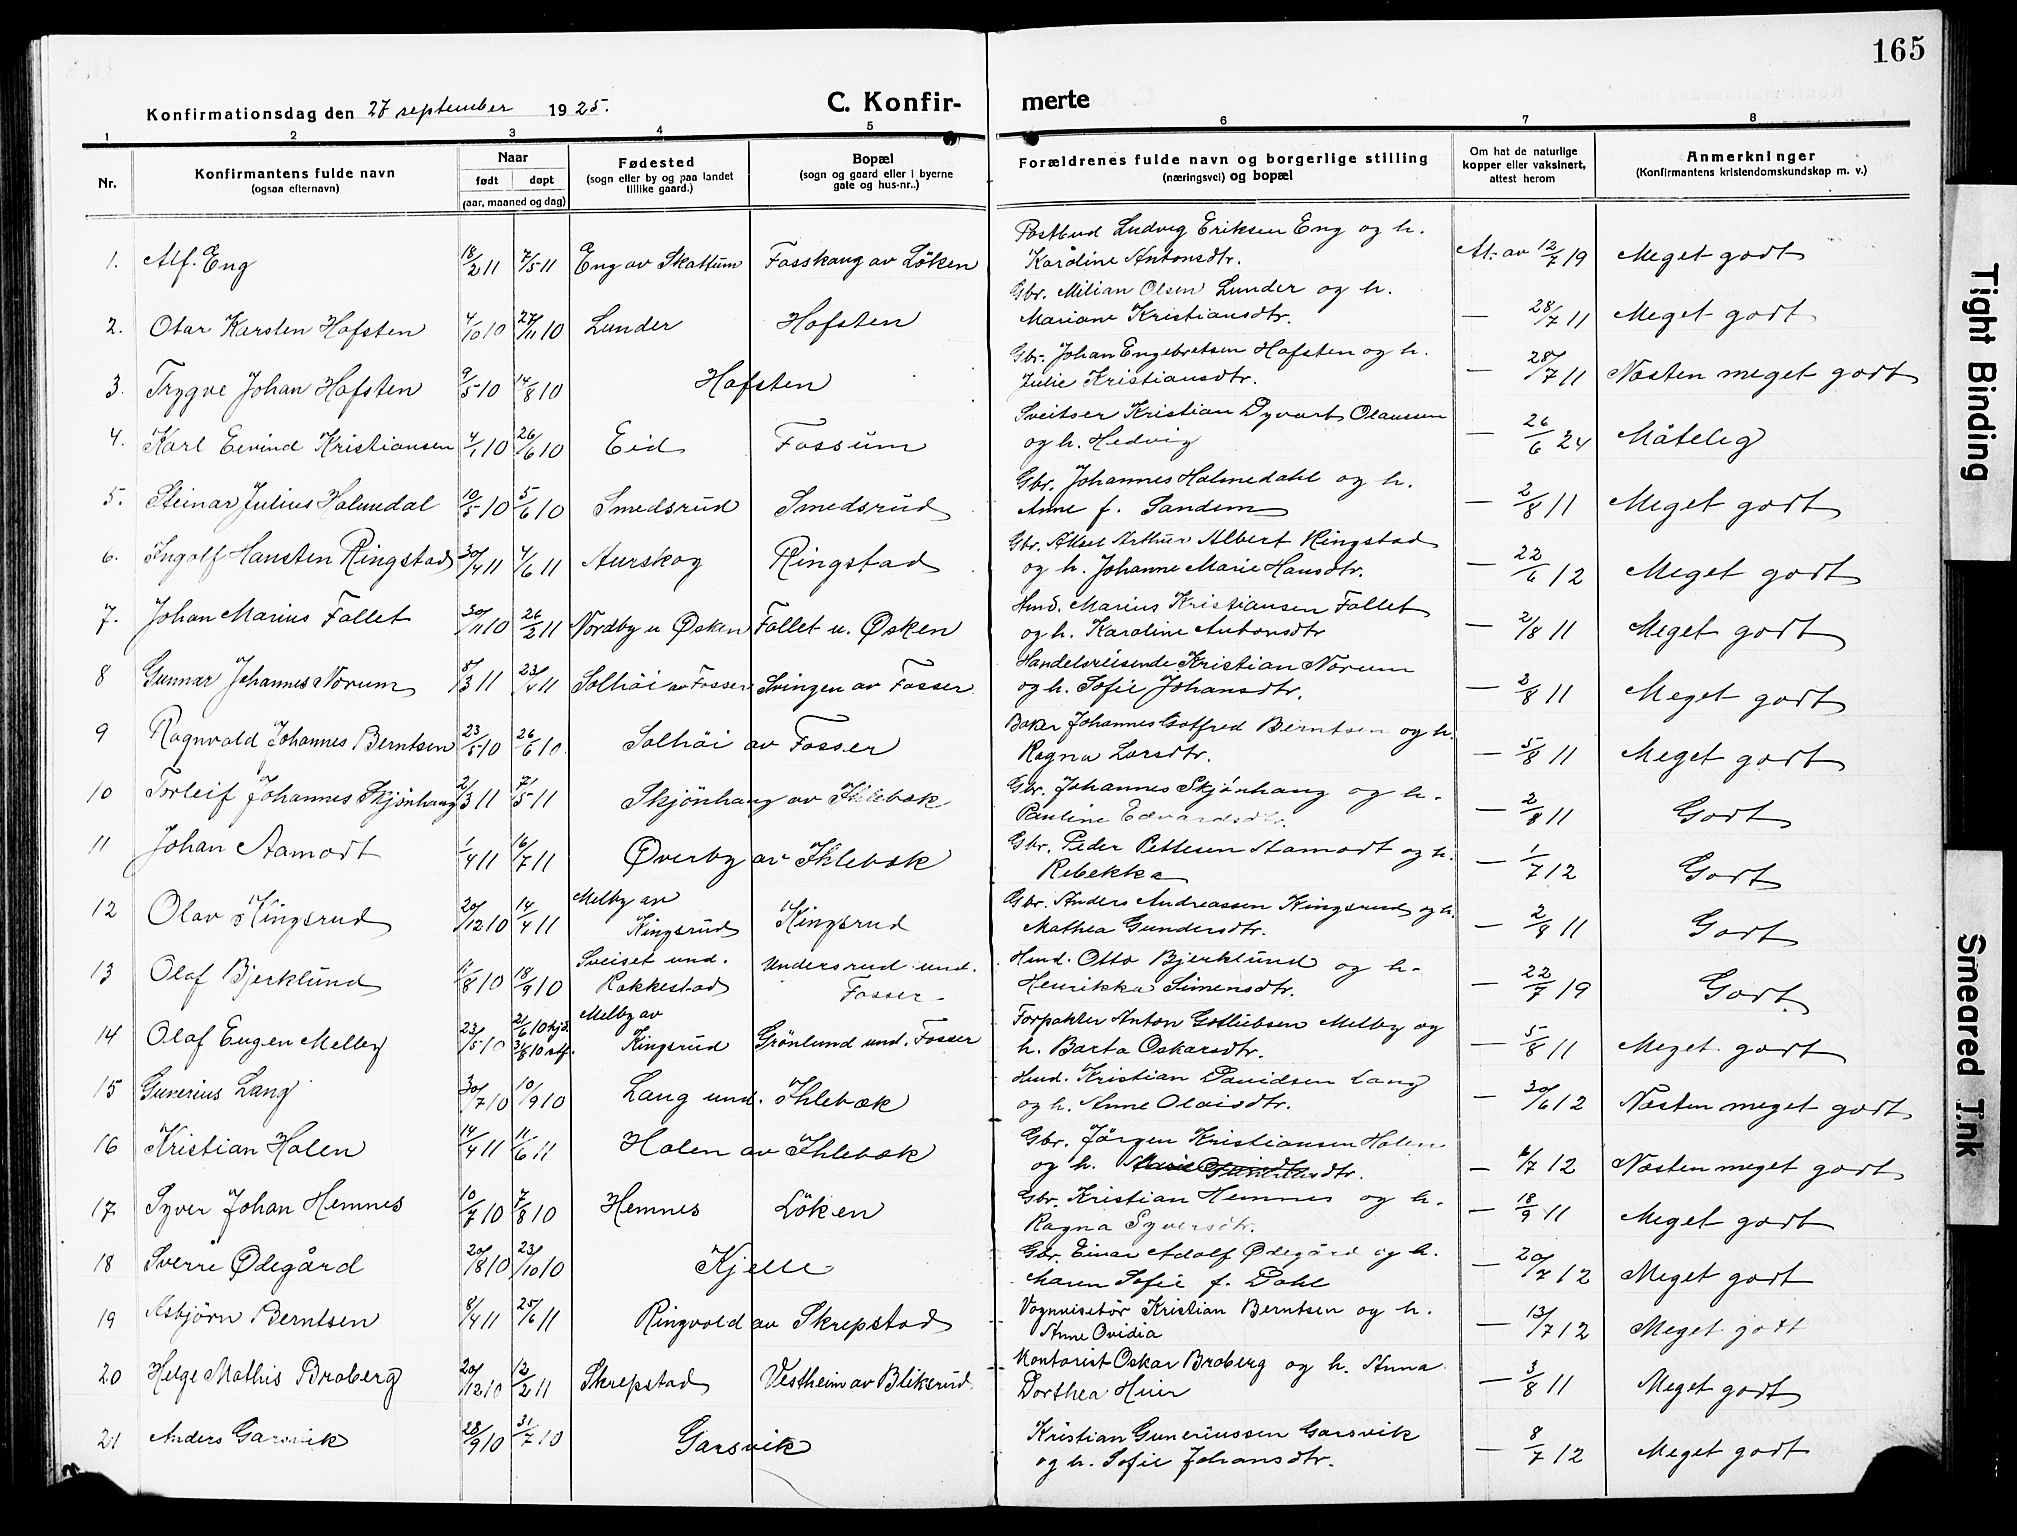 165
Konfirmationsdag den 27 september 1925.
C. Konfir-
merte
1 2 3 4 5 6 7 8
Nr.
Konfirmantens fulde navn
(ogsaa efternavn)
Naar
født døpt
(aar, maaned og dag)
Fødested
(sogn eller by og paa landet
tillike gaard.)
Bopæl
(sogn og gaard eller i byerne
gate og hus-nr..)
Forældrenes fulde navn og borgerlige stilling
(næringsvei) og bopæl
Om hat de naturlige
kopper eller vaksinert,
attest herom
Anmerkninger
(Konfirmantens kristendomskundskap m. v.)
1. Alf Eng 18/2 11 7/5 11 Eng av Skattum Fosshaug av Löken
Postbud Ludvig Eriksen Eng og h.
Karoline Antonsdtr. At. av 12/7 19 Meget godt
2. Otar Karsten Hofsten 4/10 10 27/11 10 Lunder Hofsten
Gbr. Milian Olsen Lunder og h.
Mariane Kristiansdtr. — 28/7 11 Meget godt
3. Trygve Johan Hofsten 9/5 10 14/8 10 Hofsten
Gbr. Johan Engebretsen Hofsten og h.
Julie Kristiansdtr. — 28/7 11 Næsten meget godt
4. Karl Eivind Kristiansen 4/1 10 26/6 10 Eid Fossum
Sveitser Kristian Dyvart Olaussen
og h. Hedvig — 26/6 24 Måtelig
5. Steinar Julius Holmedal 10/5 10 5/6 10 Smedsrud Smedsrud
Gbr. Johannes Holmedahl og h.
Anne f. Sandem — 2/8 11 Meget godt
6. Ingolf Hansten Ringstad 30/4 11 4/6 11 Aurskog Ringstad
Gbr. Aksel Arthur Albert Ringstad
og h. Johanne Marie Hansdtr. — 22/6 12 Meget godt
7. Johan Marius Fallet 30/11 10 26/2 11 Nordby u Øsken Fallet u. Øsken
Hmd. Marius Kristiansen Fallet
og h. Karoline Antonsdtr — 2/8 11 Meget godt
8 Gunnar Johannes Norum 8/3 11 23/4 11 Solhöi av Fosser Svingen av Fosser
Handelsreisende Kristian Norum
og h. Sofie Johansdtr. — 2/8 11 Meget godt
9 Ragnvald Johannes Berntsen 23/5 10 26/6 10. Solhöi av Fosser
Baker Johannes Gotfred Berntsen og h.
Ragna Larsdtr. — 5/8 11 Meget godt
10 Torleif Johannes Skjönhaug 2/3 11 7/5 11 Skjönhaug av Ihlebæk
Gbr. Johannes Skjönhaug og h.
Pauline Edvardsdtr. — 2/8 11 Godt
11 Johan Aamodt 1/4 11 16/7 11 Øverby av Ihlebæk
Gbr. Peder Pettersen Aamodt og h.
Rebekka — 1/7 12 Godt
12 Olav Kingsrud 20/12 10 14/4 11 Melby av
Kingsrud Kingsrud
Gbr. Anders Andreassen Kingsrud og h.
Mathea Gundersdtr. — 2/8 11 Godt
13 Olaf Bjerklund 11/8 10 18/9 10 Sveiset und.
Rakkestad Undersrud und.
Fosser
Hmd. Otto Bjerklund og h.
Henrikka Simensdtr. — 22/7 19 Godt.
14 Olaf Eugen Melby 23/5 10 21/6 10 hjd. Melby av
Kingsrud Grönlund und. Fosser
Forpakter Anton Gotliebsen Melby og
h. Barta Oskarsdtr. — 5/8 11 Meget godt
15 Gunerius Lang 30/7 10 10/9 10 Lang und. Ihlebæk
Hmd. Kristian Davidsen Lang
og h. Anne Olaisdtr. — 30/6 12 Næsten meget godt
16 Kristian Holen 14/4 11 11/6 11 Holen av Ihlebæk
Gbr. Jörgen Kristiansen Holen
og h. — 6/7 12 Næsten meget godt
17 Syver Johan Hemnes 10/7 10 7/8 10 Hemnes Löken
Gbr. Kristian Hemnes og h.
Ragna Syversdtr. — 18/9 11 Meget godt
18 Sverre Ødegård 20/8 10 23/10 10 Kjelle
Gbr. Einar Adolf Ødegård og h.
Maren Sofie f. Dahl — 20/7 12 Meget godt
19 Asbjörn Berntsen 8/4 11 25/6 11 Ringvold av Skrepstad
Vognvisitör Kristian Berntsen og h.
Anne Ovidia — 13/7 12 Meget godt
20 Helge Mathis Broberg 20/12 10 12/2 11 Skrepstad Vestheim av Blikerud
Kontorist Oskar Broberg og h. Anna
Dorthea — 3/8 11 Meget godt
21 Anders Garsvik 28/9 10 31/7 10 Garsvik
Kristian Guneriussen Garsvik
og h. Sofie Johansdtr. — 8/7 12 Meget godt
Tight Binding
Smeared Ink